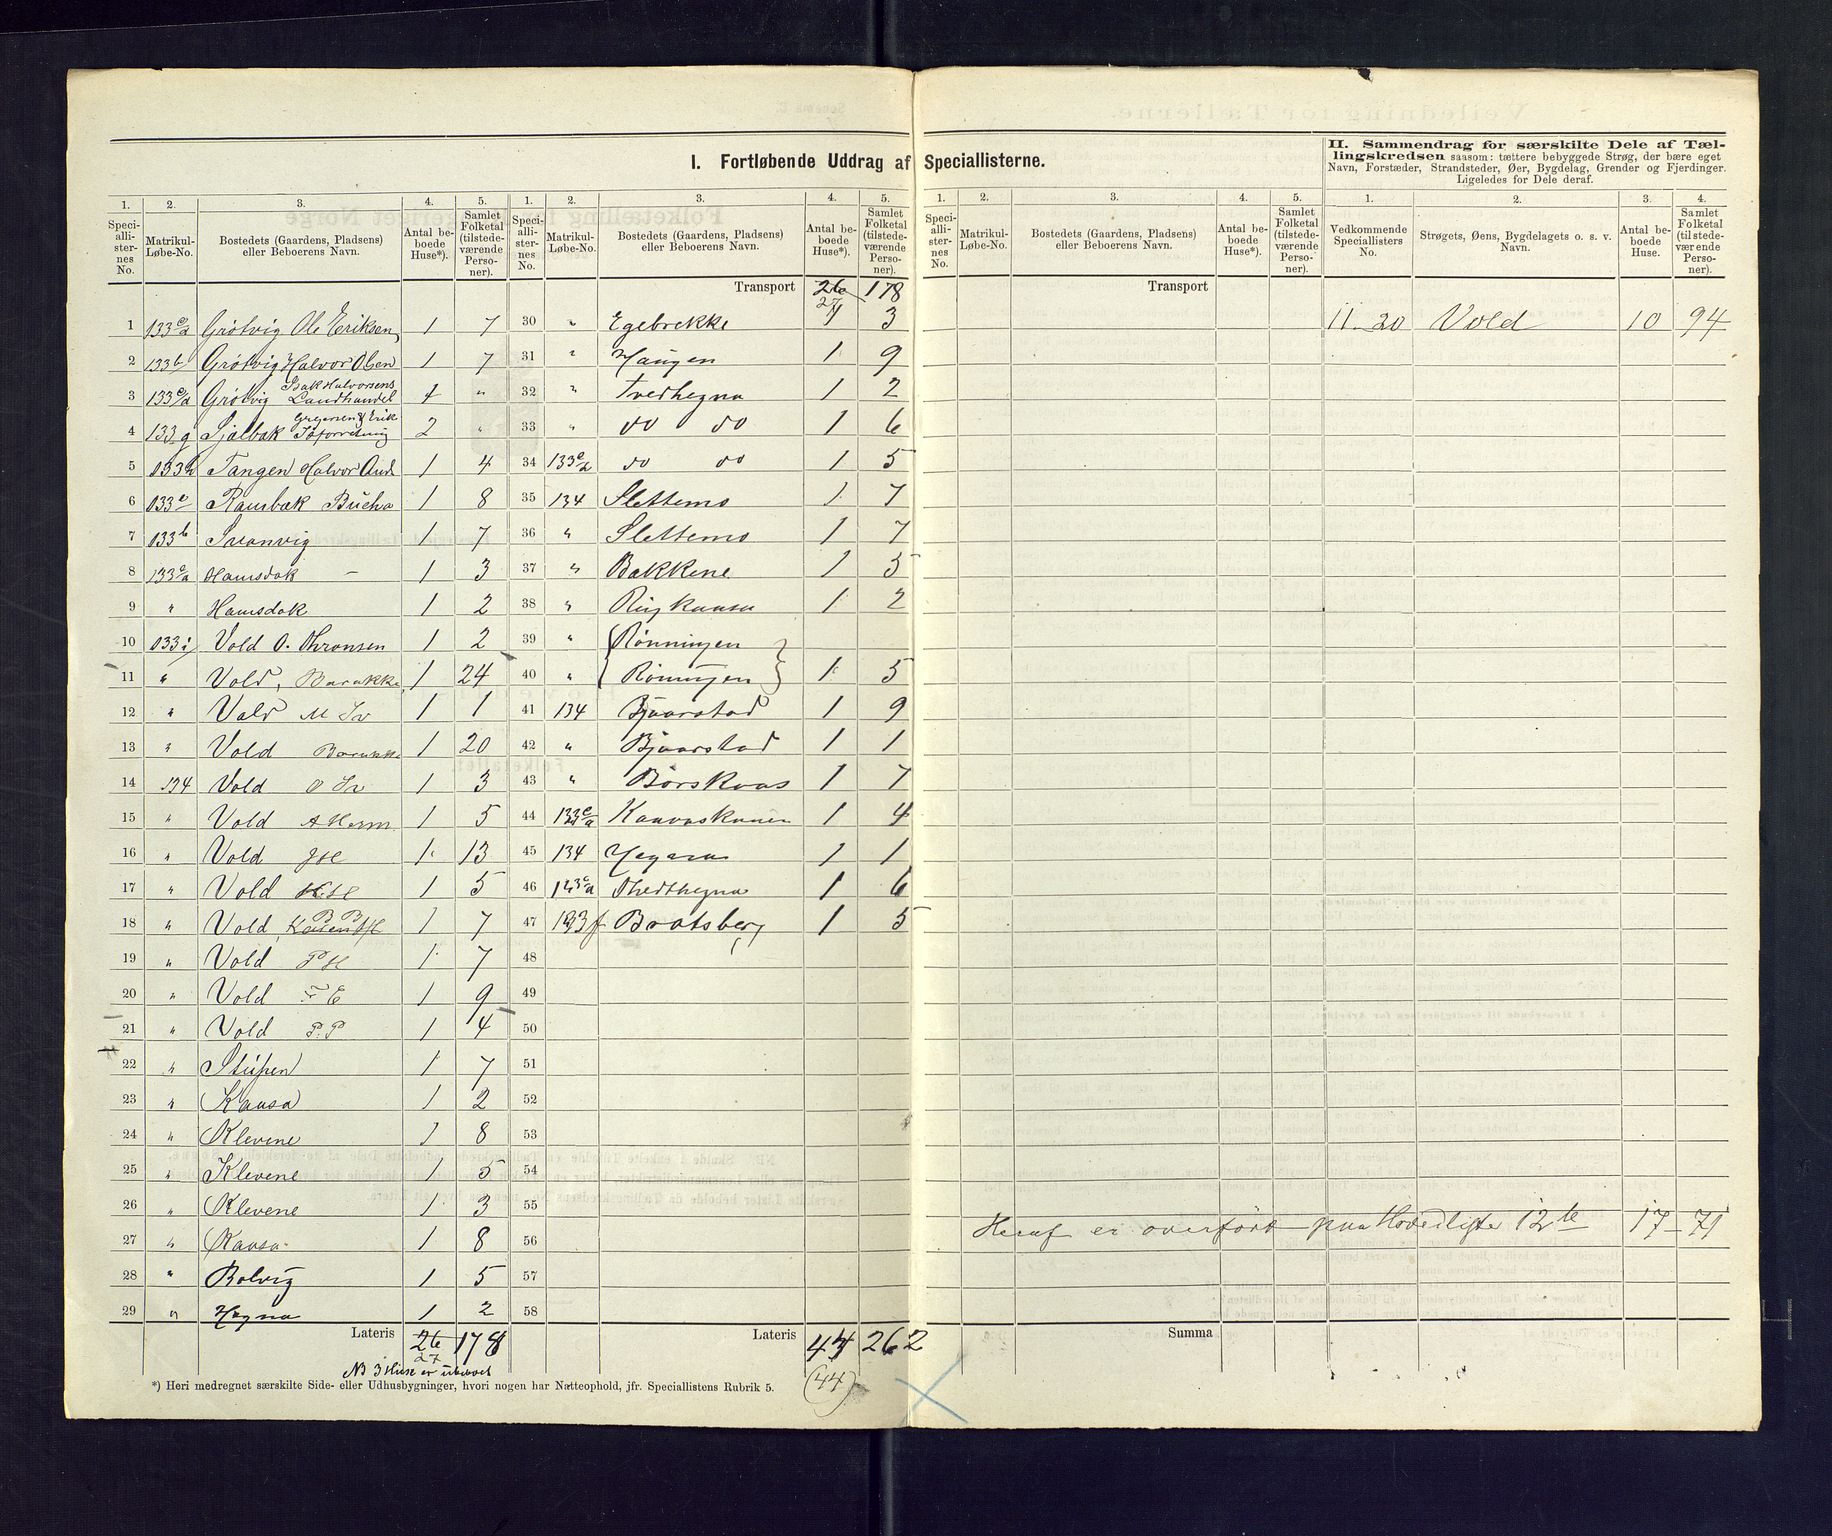 I. Fortløbende Uddrag af Speciallisterne.
II. Sammendrag for særskilte Dele af Tæl-
lingskredsen saasom: tættere bebyggede Strøg, der bære eget
Navn, Forstæder, Strandsteder, Øer, Bygdelag, Grender og Fjerdinger.
Ligeledes for Dele deraf.
1. 2. 3. 4. 5. 1. 2. 3. 4. 5. 1. 2. 3. 4. 5. 1. 2. 3. 4.
Speci-alli-ster-nes No. Matrikul-Løbe-No. Bostedets (Gaardens, Pladsens) eller Beboerens Navn. Antal be-boede Huse*). Samlet Folketal (tilstede-værende Perso-ner).
Speci-alli-ster-nes No. Matrikul-Løbe-No. Bostedets (Gaardens, Pladsens) eller Beboerens Navn. Antal be-boede Huse*). Samlet Folketal (tilstede-værende Perso-ner).
Speci-alli-ster-nes No. Matrikul-Løbe-No. Bostedets (Gaardens, Pladsens) eller Beboerens Navn. Antal be-boede Huse*). Samlet Folketal (tilstede-værende Perso-ner).
Vedkommende Speciallisters No. Strøgets, Øens, Bygdelagets o. s. v. Navn. Antal be-boede Huse. Samlet Folketal (tilstede-værende Perso-ner).
1 Grötvig Ole Eriksen 1 7
2 133b Grötvig Halvor Olsen 1 7
3 Grötvig Isak Halvorsens Landhandel
4 133g 2 "
5 Tangen Halvor 1 4
6 1 8
7 133b Svanvig 1 7
8 Hamsdok 1 3
9 " Hamsdok 1 2
10 Vold O. Thronsen 1 2
11 " Vold, Barakke 1 24
12 " Vold 1 1
13 " Vold Barakke 1 20
14 134 Vold 1 3
15 " Vold 1 5
16 " Vold 1 13
17 " Vold 1 5
18 " Vold 1 7
19 " Vold 1 7
20 " Vold 1 9
21 " Vold P.P 1 4
22 " Stupen 1 7
23 " Kaasa 1 2
24 " Klevene 1 8
25 " Klevene 1 5
26 " Klevene 1 3
27 " Kaasa 1 8
28 " Bolvig 1 5
29 " Hegna 1 2
Lateris 26 178
27
NB 3 Huse er ubeboet
Transport 26 178
27
30 " Egebrekke 1 3
31 " Haugen 1 9
32 " Tvedhegna 1 2
33 " do do 1 6
34 do do 1 5
35 134 Slettemo 1 7
36 " Slettemo 1 7
37 " Bakkene 1 5
38 " Ringkaasa 1 2
39 " Rønningen
40 " Rønningen 1 5
41 134 Bjaarstad 1 9
42 " Bjaarstad 1 1
43 " Borskaas 1 7
44 1 4
45 134 1 1
46 Thedthegna 1 6
47 Bratsberg 1 5
48
49
50
51
52
53
54
55
56
57
58
Lateris 43 262
(44)
Transport
Summa
11–20 Vold 10 94
Heraf er overført paa Hovedliste 12te 17 – 71
*) Heri medregnet særskilte Side- eller Udhusbygninger, hvori nogen har Natteophold, jfr. Speciallistens Rubrik 5.